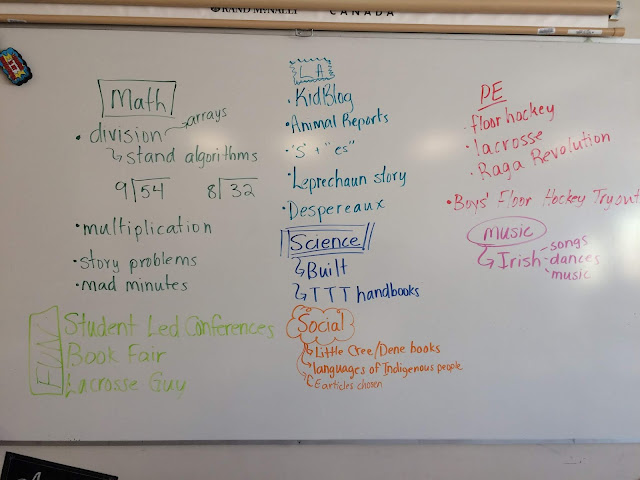 RAND MCNALLY CANADA
Math
• division → arrays
↳ stand algorithms
9⟌54 8⟌32
• multiplication
• story problems
• mad minutes
FUN
Student Led Conferences
Book Fair
Lacrosse Guy
LA
• KidBlog
• Animal Reports
• "s" + "es"
• Leprechaun story
• Despereaux
Science
↳ Built
↳ TTT handbooks
Social
↳ Little Cree/Dene books
↳ languages of Indigenous people
↳ CE articles chosen
PE
• floor hockey
• lacrosse
• Raga Revolution
• Boys' Floor Hockey Tryout
music
↳ Irish - songs
- dances
- music